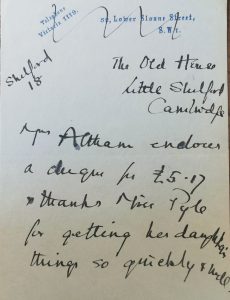 Telephone
Victoria 1119.
80, Lower Sloane Street,
S.W.1.
Shelford
18
The Old House
Little Shelford
Cambridge
Mrs Altham encloses
a cheque for £5-17
& thanks Miss Pyle
for getting her daughter's
things so quickly & well